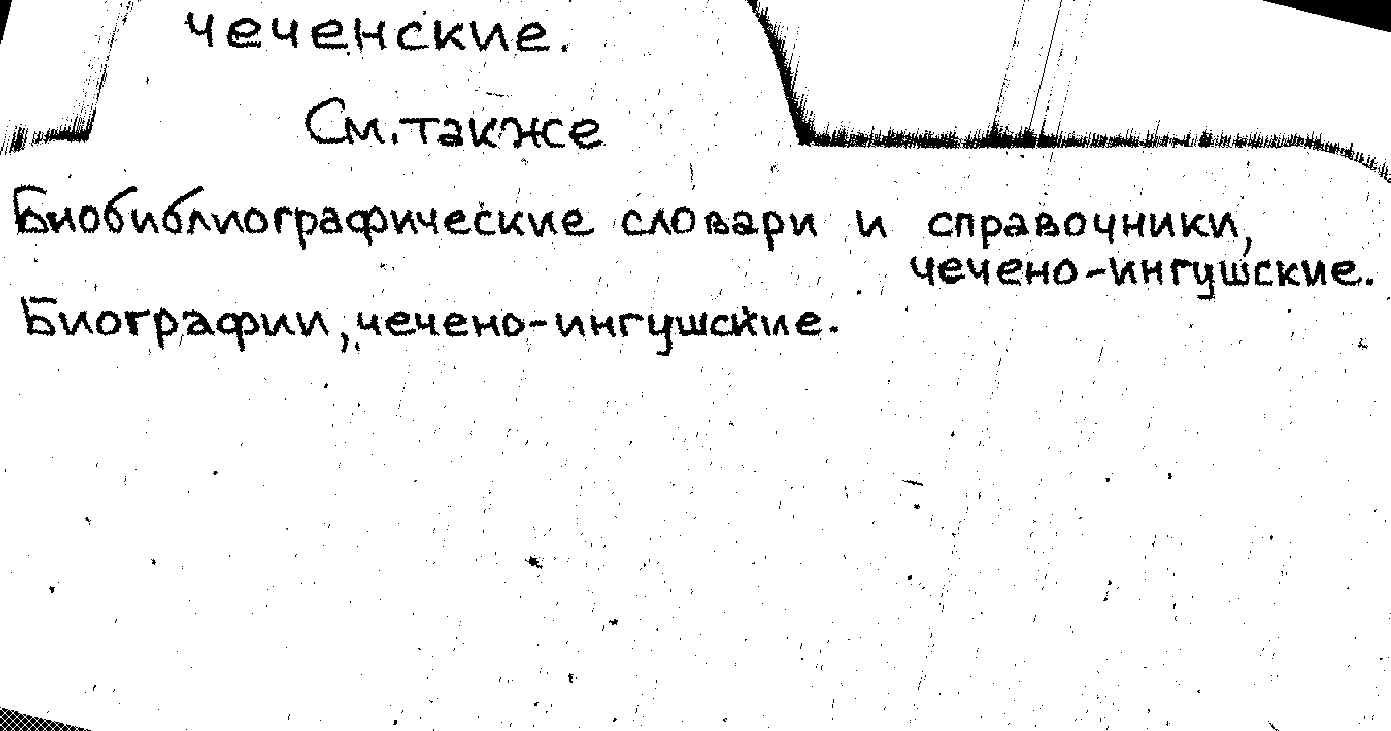 чеченские.
См. также
Биобиблиографические словари и справочники,
чечено-ингушские.
Биографии, чечено-ингушские.